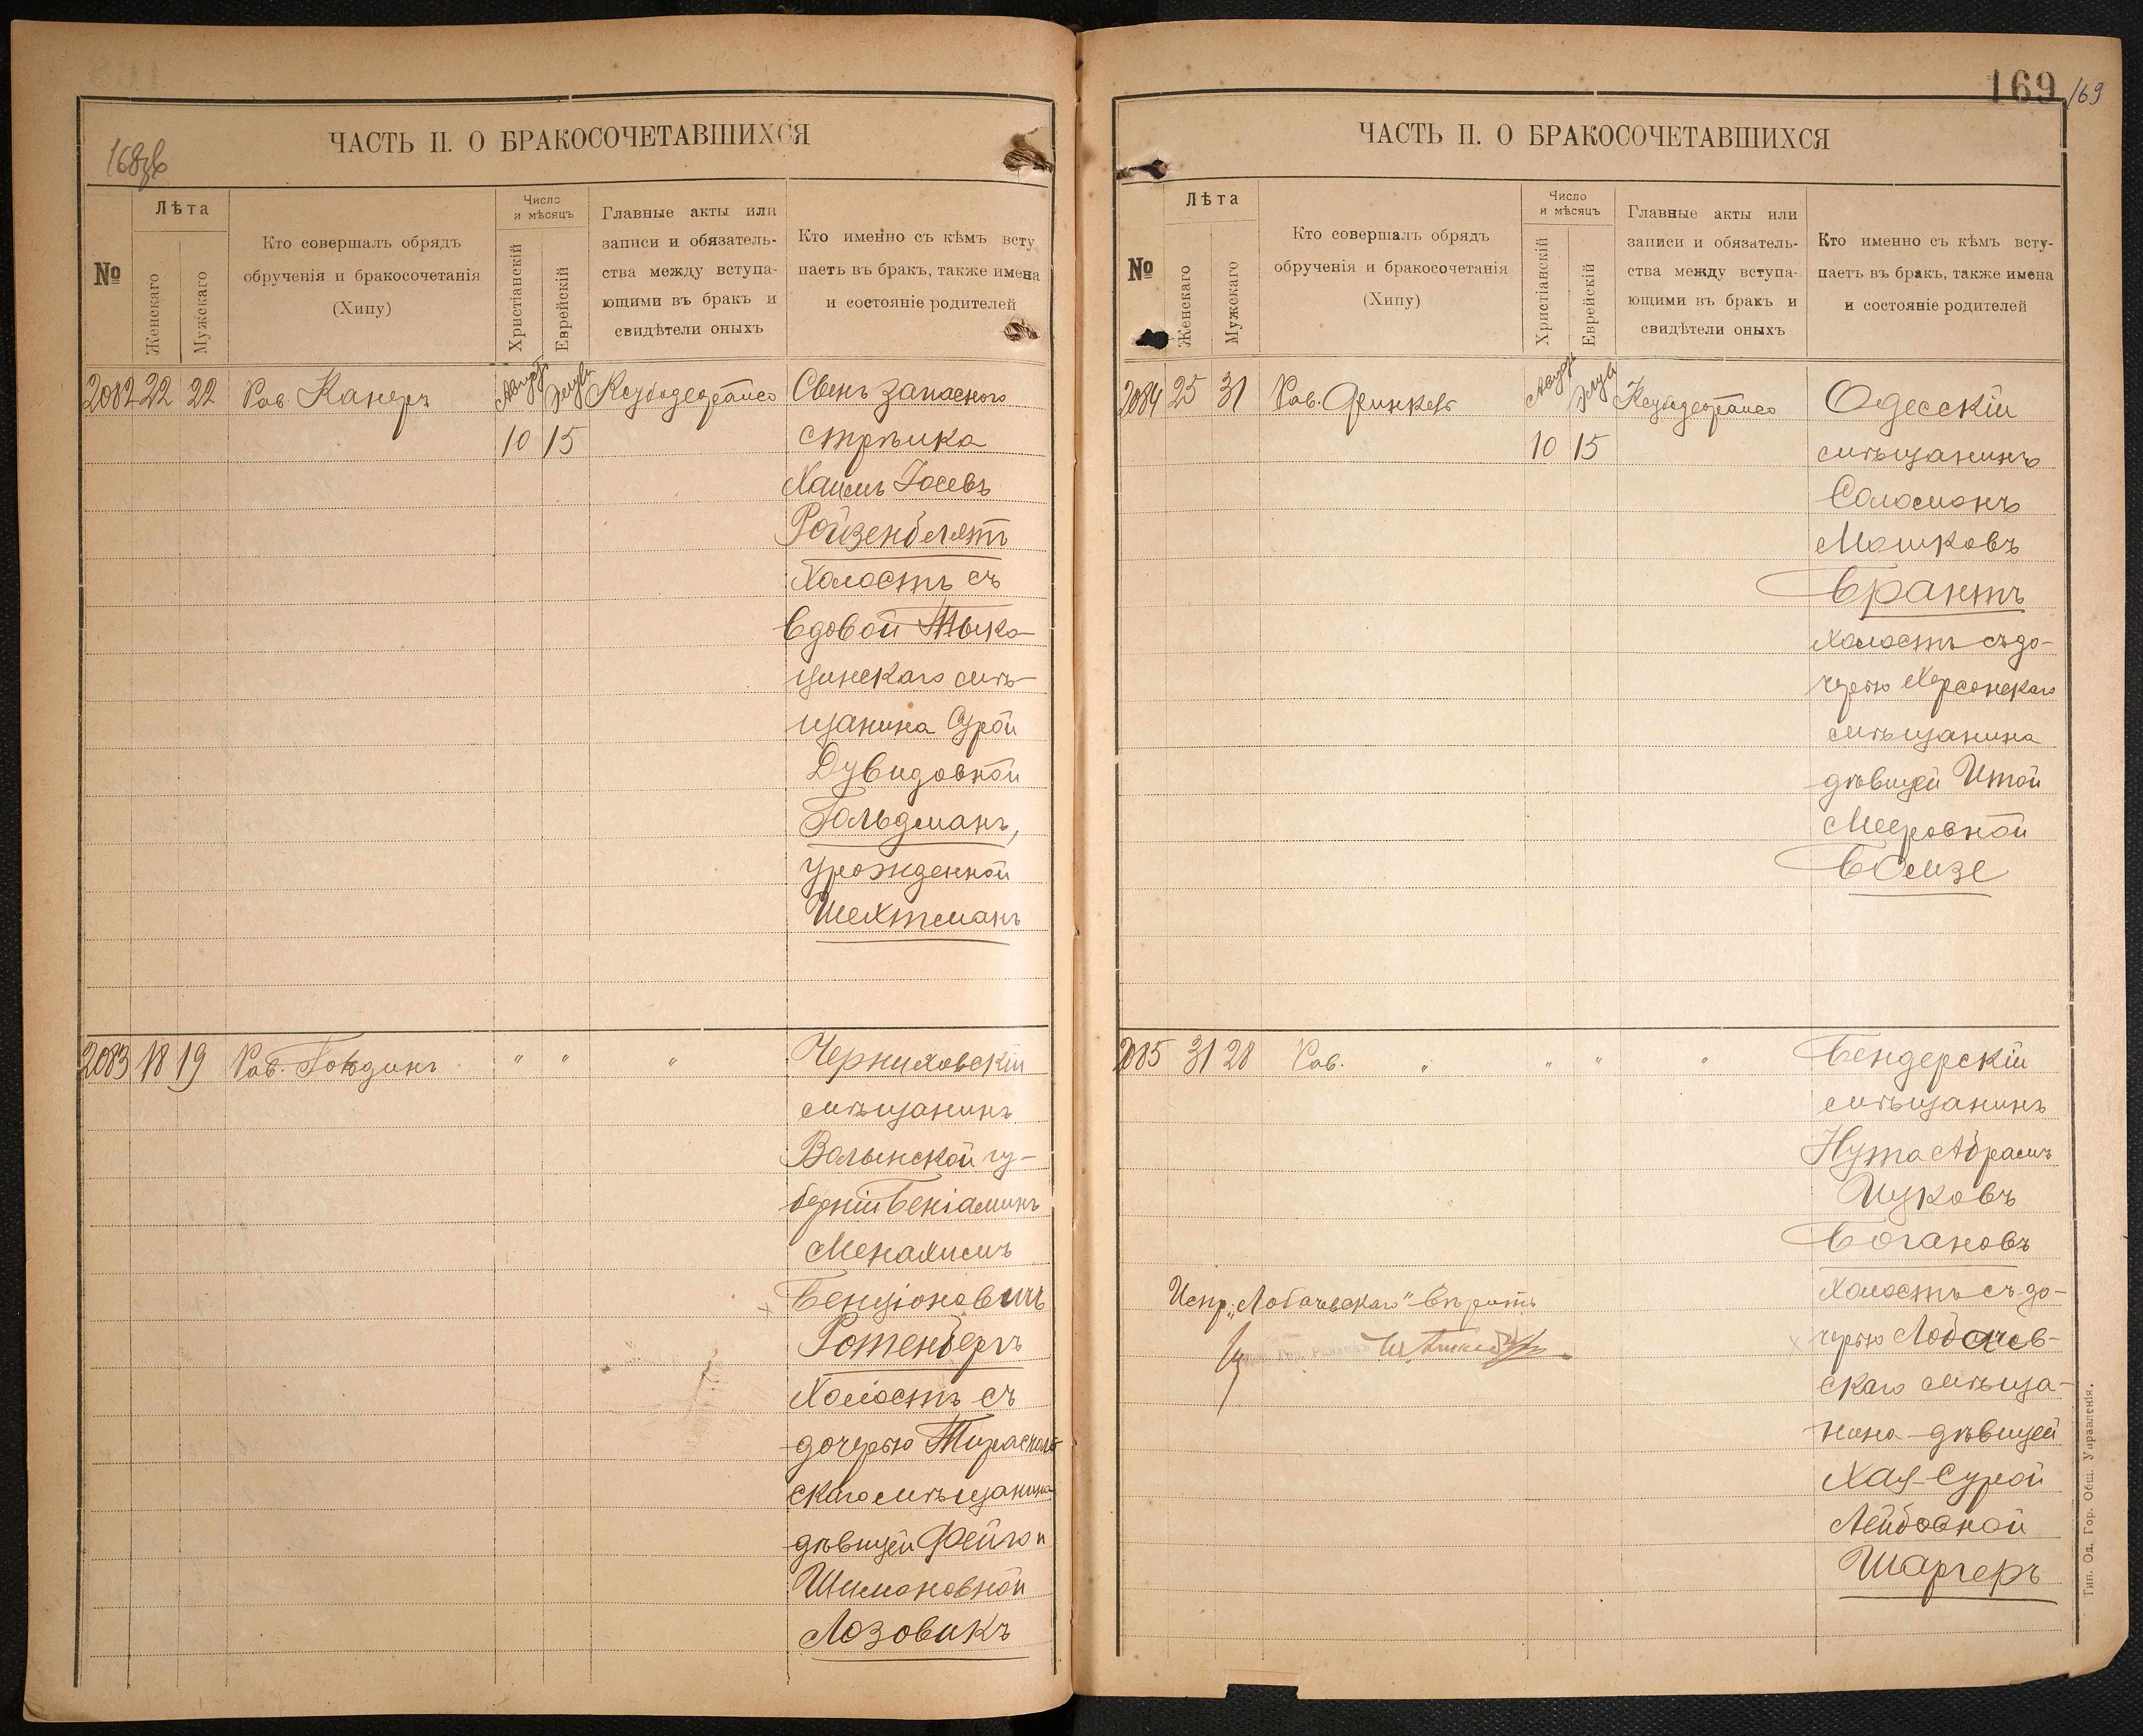 168об
ЧАСТЬ II. О БРАКОСОЧЕТАВШИХСЯ
№
Лѣта
Женскаго
Мужскаго
Кто совершалъ обрядъ
обрученія и бракосочетанія
(Хипу)
Число
и мѣсяцъ
Христіанскій
Еврейскій
Главные акты или
записи и обязатель-
ства между вступа-
ющими въ бракъ и
свидѣтели оныхъ
Кто именно съ кѣмъ всту
паетъ въ бракъ, также имена
и состояніе родителей
2082 22 22 Рав. Канеръ
10 15
Сынъ запасного
стрѣлка
Хаимъ Іосевъ
Ройзенблятъ
Холостъ съ
вдовой Тыко-
цинскаго мѣ-
щанина Сурой
Дувидовной
Гольдманъ,
урожденной
Шехтманъ
2083 18 19 Рав. " " "
Черниховскій
мѣщанинъ
Волынской гу-
берніи Беніаминъ
Менахимъ
Бенціоновичъ
Ротенбергъ
Холостъ съ
дочерью Тираспол
скаго мѣщанина
дѣвицей Фейгой
Шимоновной
Лозовикъ
169 169
ЧАСТЬ II. О БРАКОСОЧЕТАВШИХСЯ
№
Лѣта
Женскаго
Мужскаго
Кто совершалъ обрядъ
обрученія и бракосочетанія
(Хипу)
Число
и мѣсяцъ
Христіанскій
Еврейскій
Главные акты или
записи и обязатель-
ства между вступа-
ющими въ бракъ и
свидѣтели оныхъ
Кто именно съ кѣмъ всту-
паетъ въ бракъ, также имена
и состояніе родителей
2084 25 31 Рав. Финкель
10 15
Одесскій
мѣщанинъ
Соломонъ
Мошковъ
Брантъ
холостъ съ до-
черью Херсонскаго
мѣщанина
дѣвицей Итой
Мееровной
Бомзе
2085 31 28 Рав. " " " "
Бендерскій
мѣщанинъ
Нута Абрамъ
Ицковъ
Богановъ
холостъ съ до-
черью Лобачев-
скаго мѣща-
нина дѣвицей
Хая-Сурой
Лейбовной
Шаргеръ
Испр. „Лобачевскаго" вѣрить
Тип. Од. Гор. Общ. Управленія.